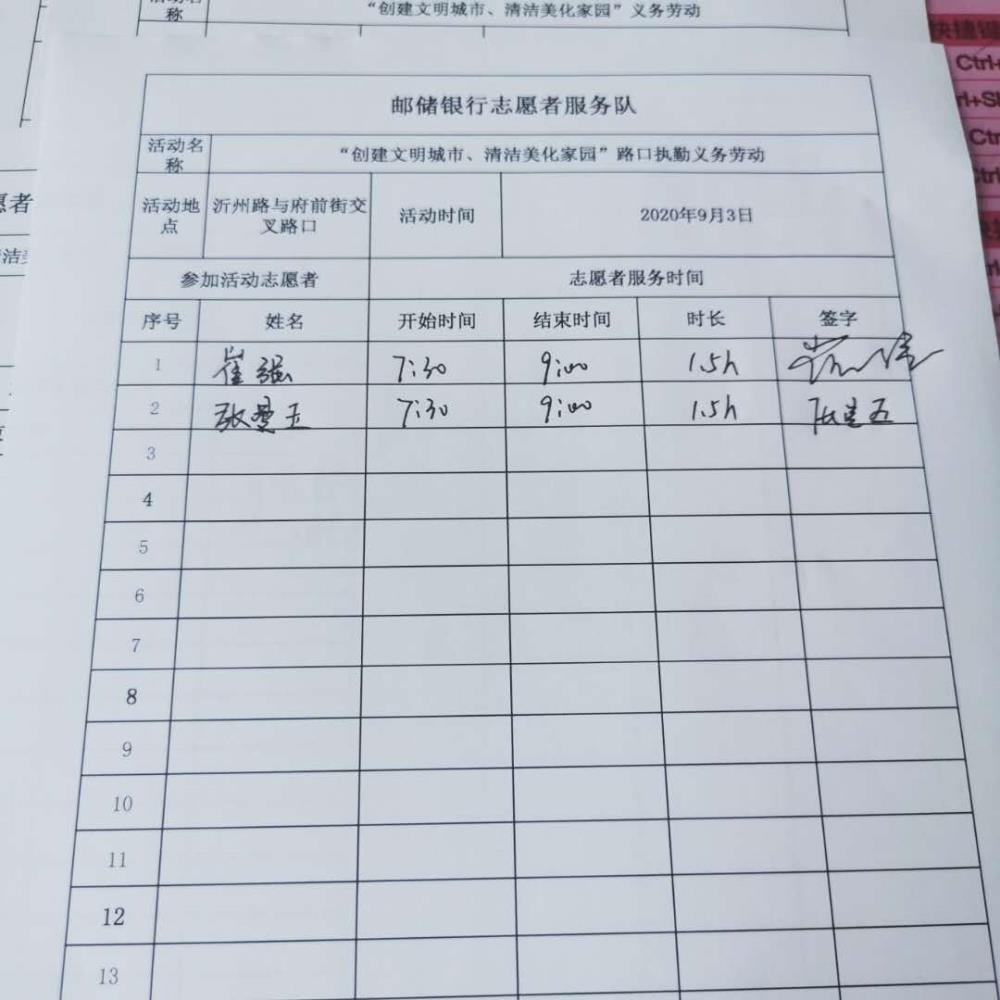 称
“创建文明城市、清洁美化家园”义务劳动
快捷键
Ctrl+
Ctrl
Ctrl
愿者
清洁美
邮储银行志愿者服务队
活动名称
“创建文明城市、清洁美化家园”路口执勤义务劳动
活动地点
沂州路与府前街交
叉路口
活动时间
2020年9月3日
参加活动志愿者
志愿者服务时间
序号 姓名 开始时间 结束时间 时长 签字
1 崔强 7:30 9:00 1.5h
2 张曼玉 7:30 9:00 1.5h
3
4
5
6
7
8
9
10
11
12
13